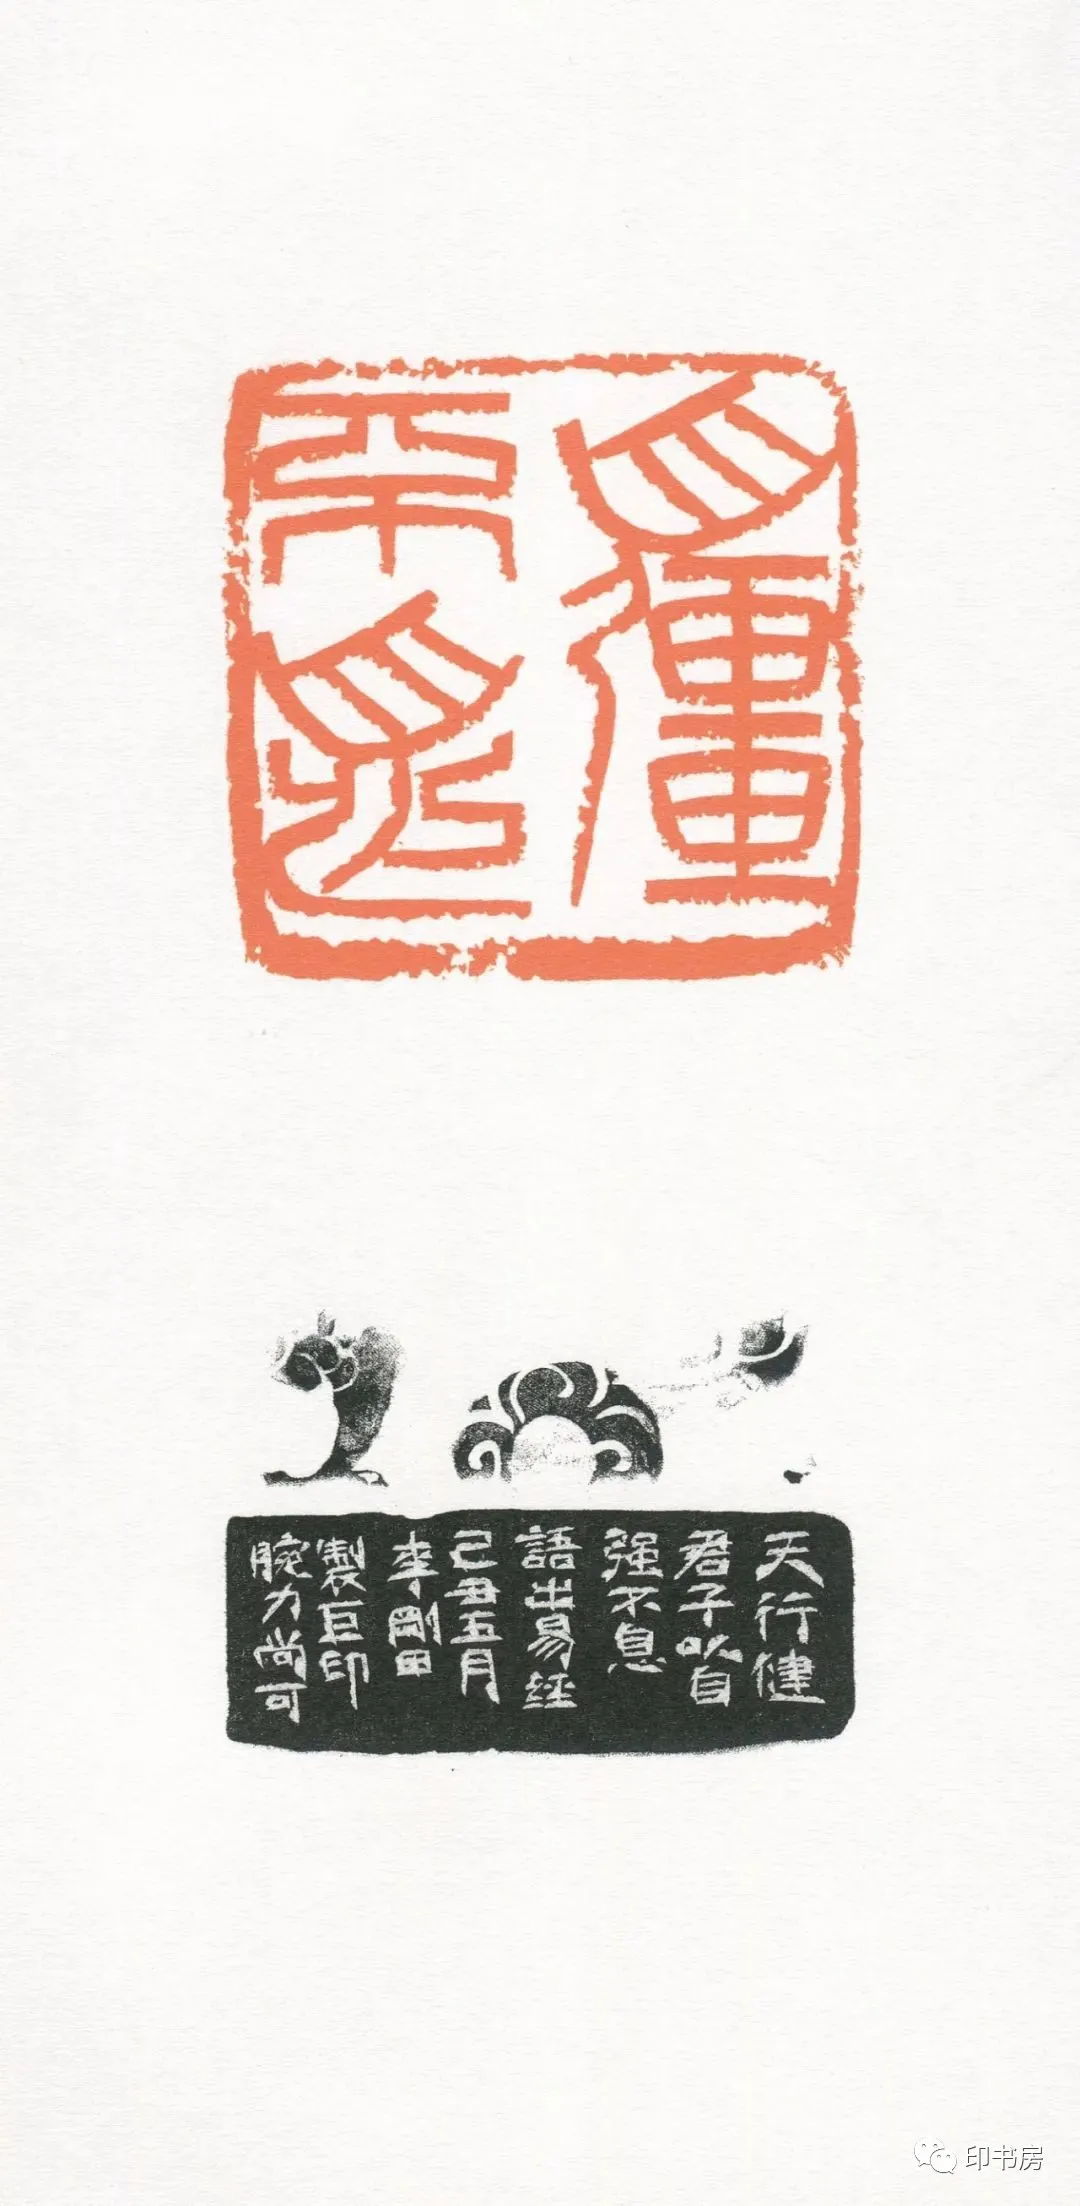 自彊
不息
天行健
君子以自
强不息
語出易经
己丑五月
李剛田
製巨印
腕力尚可
印书房